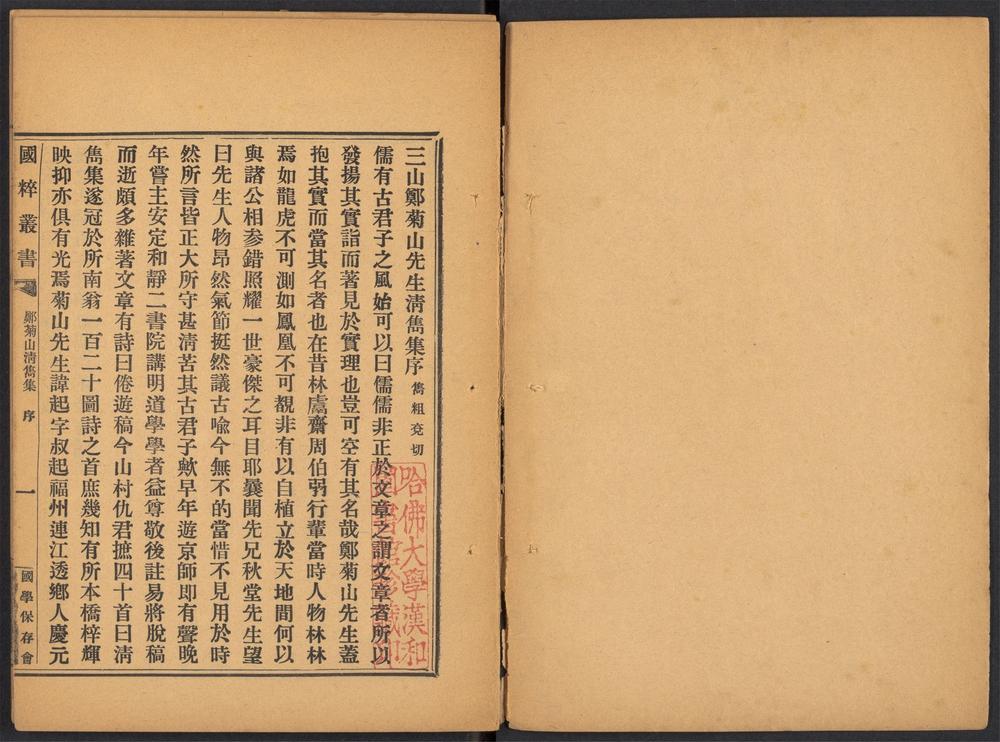 三山鄭菊山先生淸雋集序 雋粗兗切
儒有古君子之風始可以曰儒儒非正於文章之謂文章者所以
發揚其實詣而著見於實理也豈可空有其名哉鄭菊山先生蓋
抱其實而當其名者也在昔林鬳齋周伯弜行輩當時人物林林
焉如龍虎不可測如鳳凰不可覩非有以自植立於天地間何以
與諸公相參錯照耀一世豪傑之耳目耶曩聞先兄秋堂先生望
曰先生人物昂然氣節挺然議古喻今無不的當惜不見用於時
然所言皆正大所守甚淸苦其古君子歟早年遊京師即有聲晚
年嘗主安定和靜二書院講明道學學者益尊敬後註易將脫稿
而逝頗多雜著文章有詩曰倦遊稿今山村仇君摭四十首曰淸
雋集遂冠於所南翁一百二十圖詩之首庶幾知有所本橋梓輝
映抑亦俱有光焉菊山先生諱起字叔起福州連江透鄉人慶元
國粹叢書 鄭菊山淸雋集 序 一 國學保存會
哈佛大學漢和
圖書館珍藏印